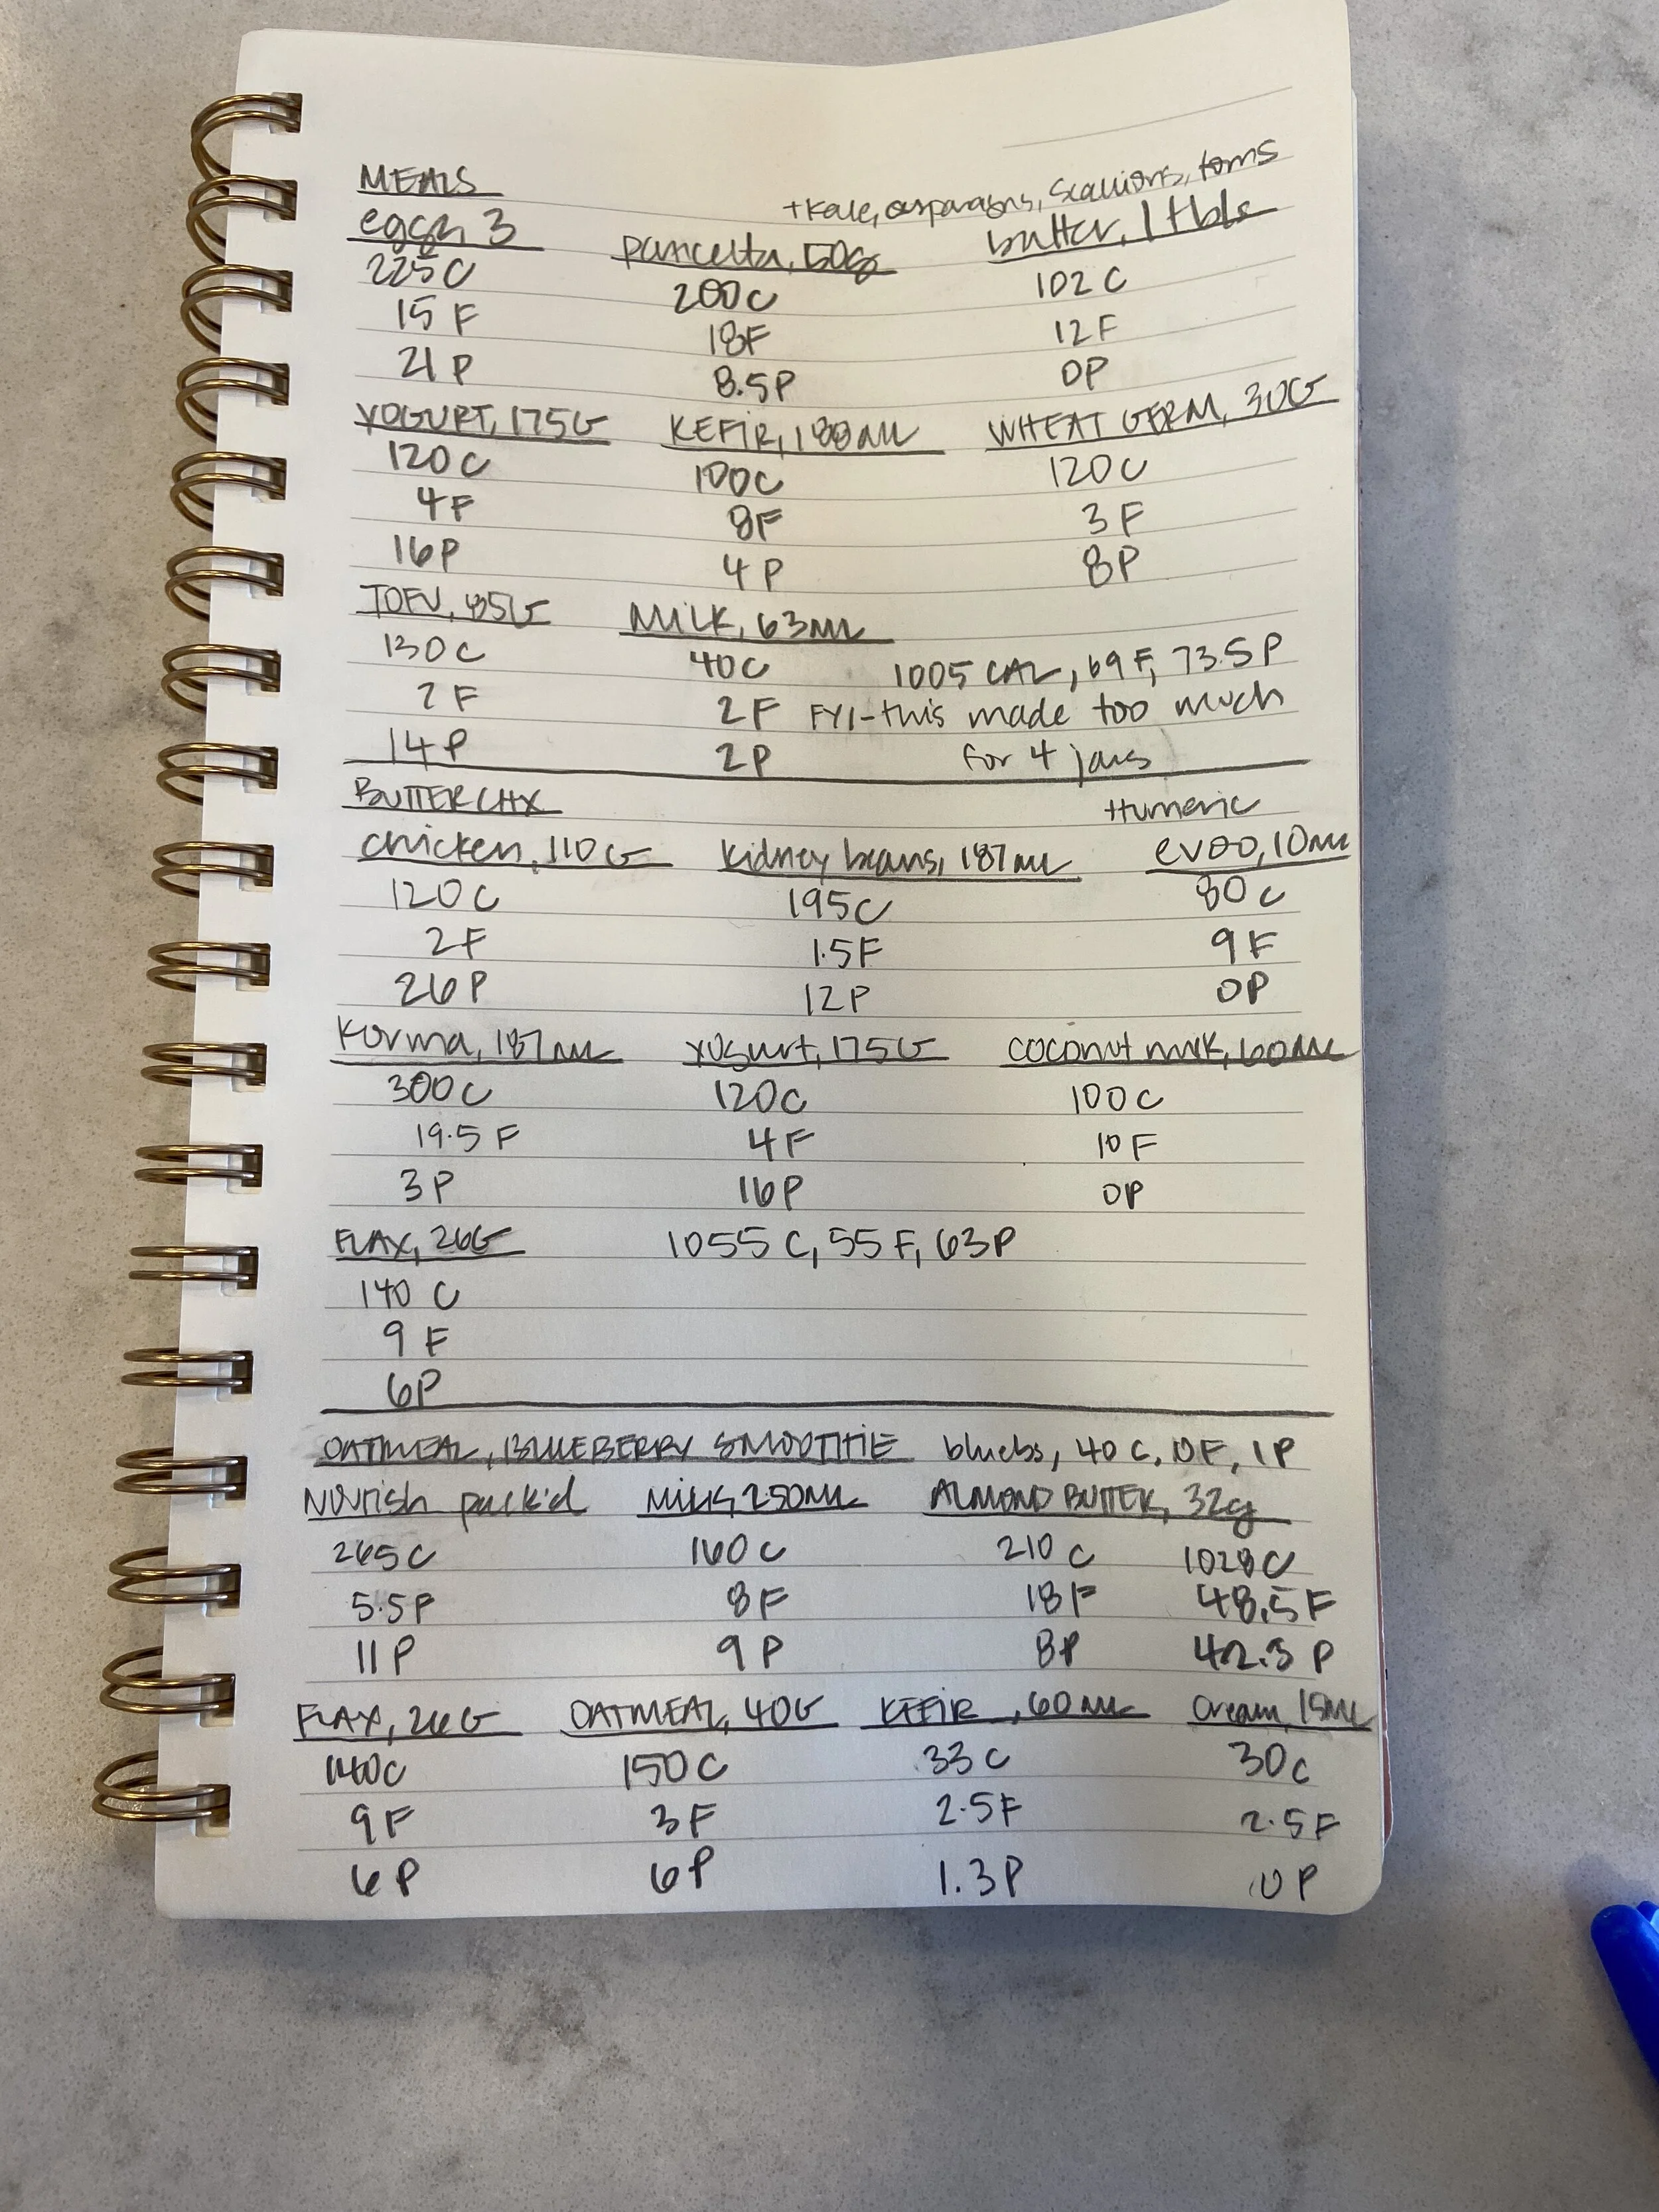 MEALS
+kale, asparagus, scallions, toms
eggs, 3 pancetta, 50g butter, 1 tbls
225C 200C 102C
15F 18F 12F
21P 8.5P 0P
YOGURT, 175G KEFIR, 188ML WHEAT GERM, 30G
120C 100C 120C
4F 8F 3F
16P 4P 8P
TOFU, 85G MILK, 63ML
130C 40C 1005 CAL, 69F, 73.5P
7F 2F FYI-this made too much
14P 2P for 4 jars
BUTTER CHX +tumeric
chicken, 110G kidney beans, 187ml evoo, 10ml
120C 195C 80C
2F 1.5F 9F
26P 12P 0P
Korma, 187ml yogurt, 175G coconut milk, 60ML
300C 120C 100C
19.5F 4F 10F
3P 16P 0P
FLAX, 26G 1055C, 55F, 63P
140C
9F
6P
OATMEAL, BLUEBERRY SMOOTHIE bluebs, 40C, 0F, 1P
Nourish pack'd MILK, 250ML ALMOND BUTTER, 32g
265C 160C 210C 1028C
5.5P 8F 18F 48.5F
11P 9P 8P 42.3P
FLAX, 26G OATMEAL, 40G KEFIR, 60ML cream, 15ML
140C 150C 33C 30C
9F 3F 2.5F 2.5F
6P 6P 1.3P 0P